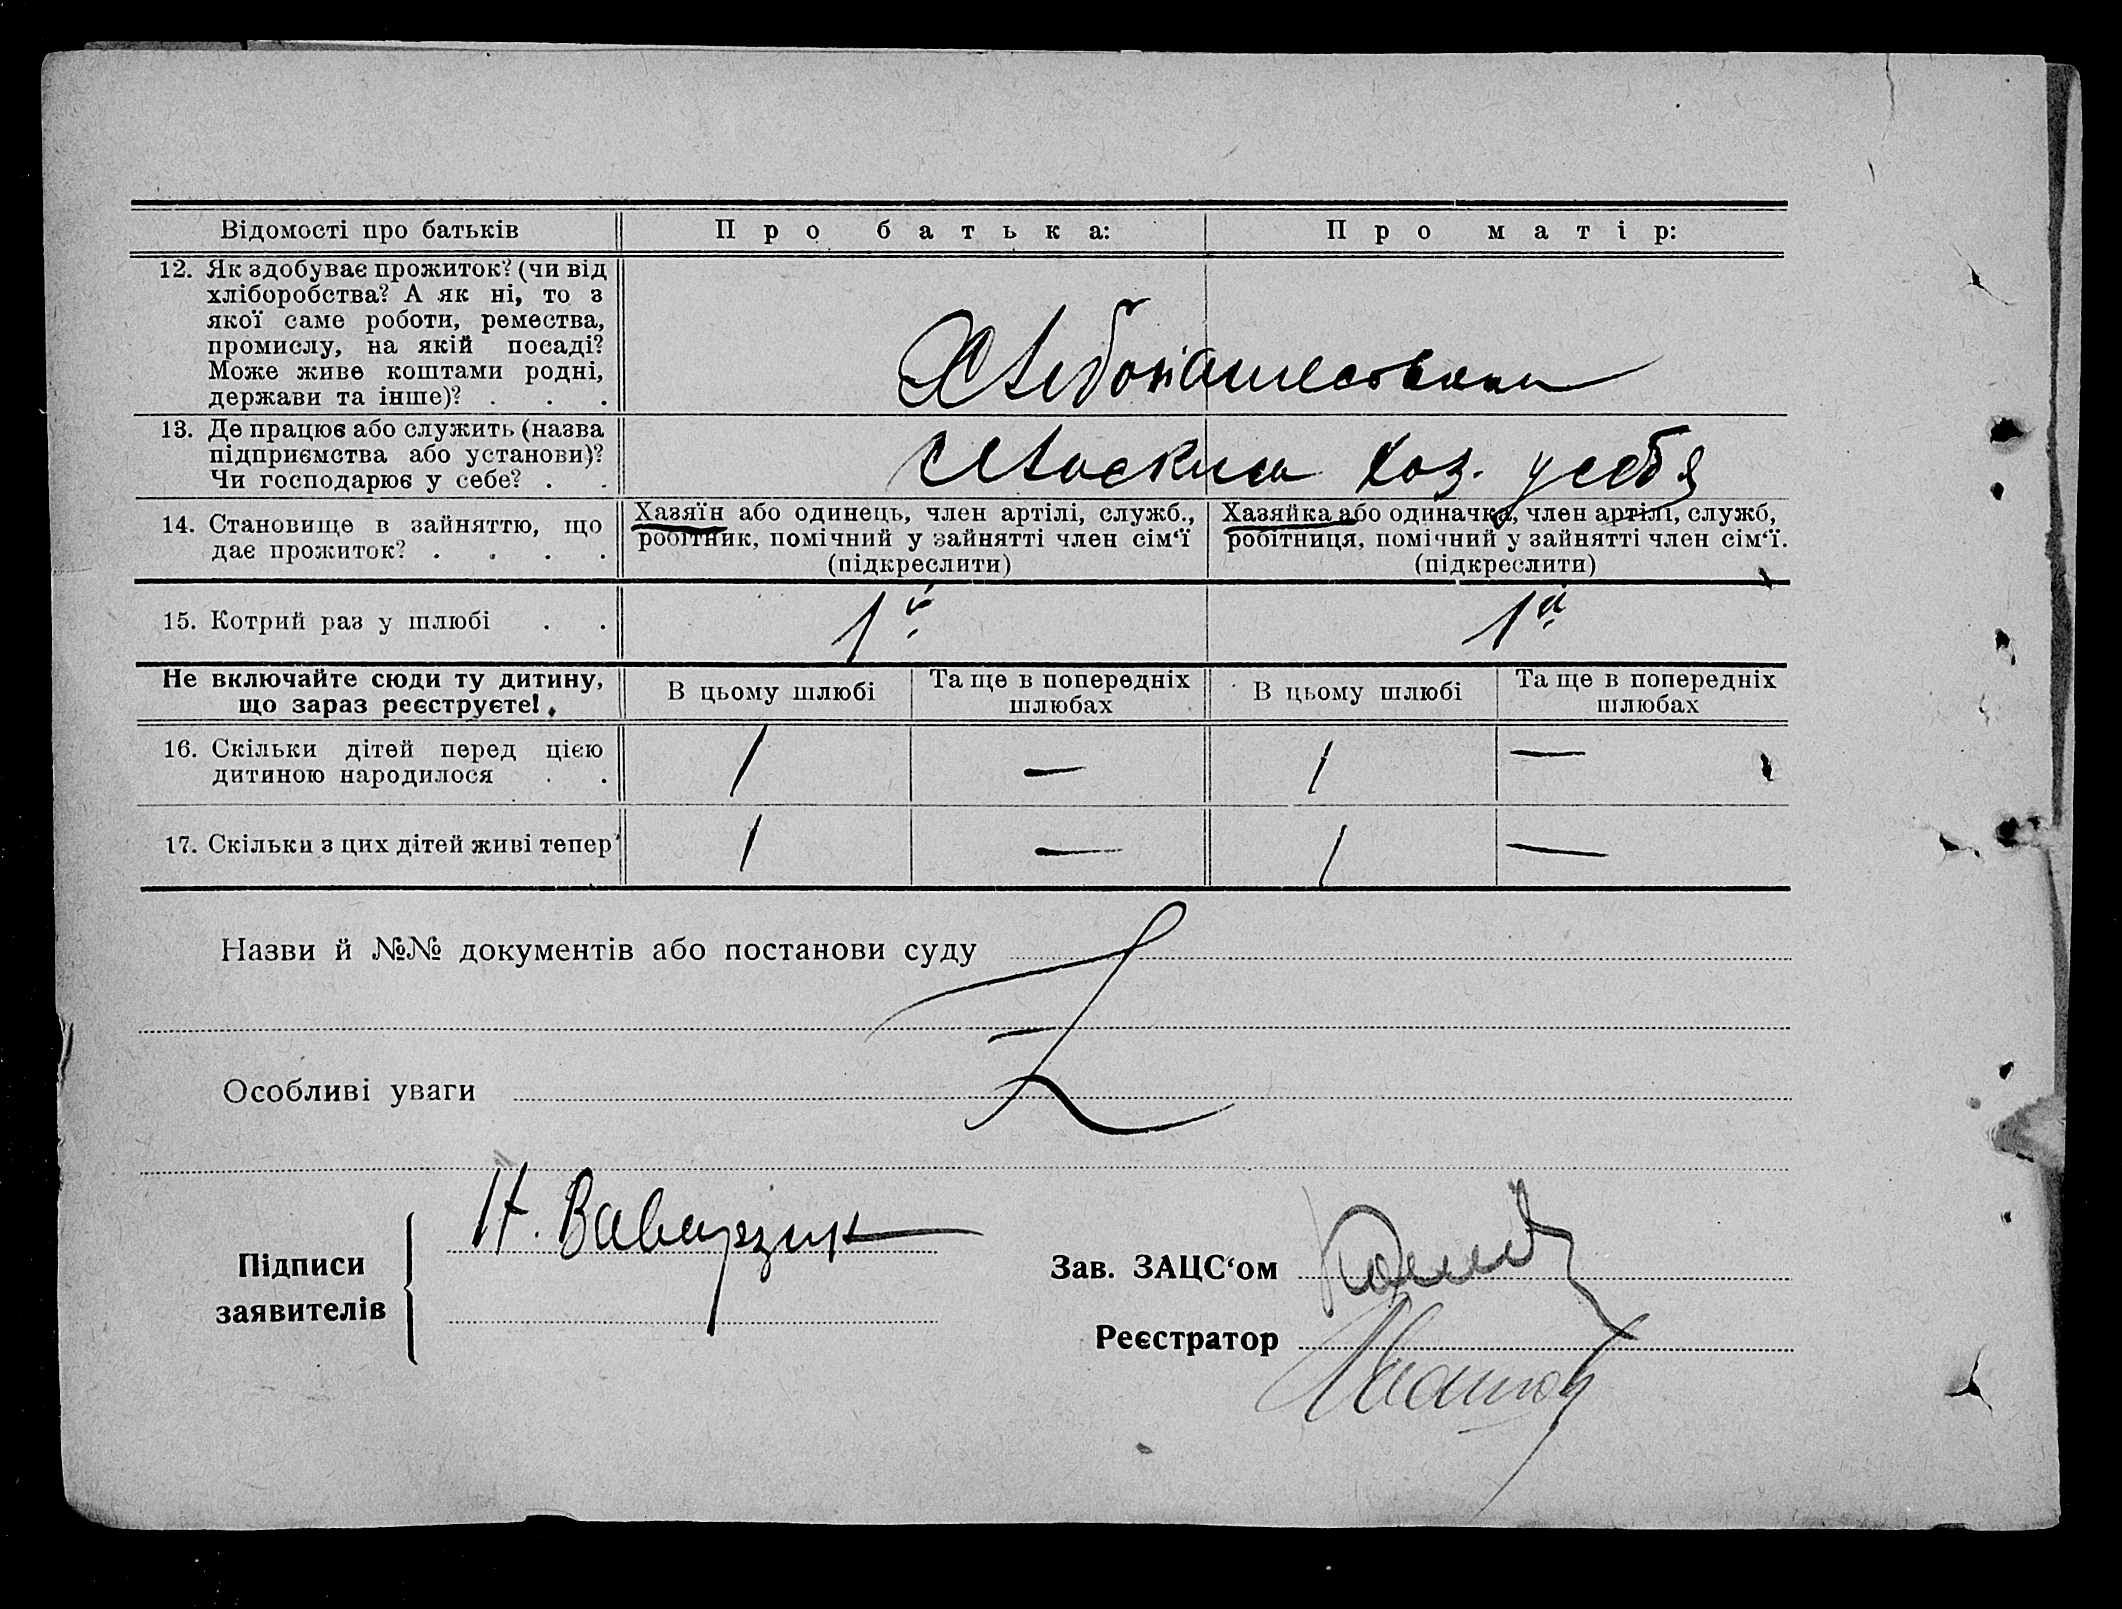 Відомості про батьків
Про батька:
Про матір:
12. Як здобуває прожиток? (чи від
хліборобства? А як ні, то з
якої саме роботи, ремества,
промислу, на якій посаді?
Може живе коштами родні,
держави та інше)? . . .
Хлебопашеством
13. Де працює або служить (назва
підприємства або установи)?
Чи господарює у себе? . .
хоз. у себя
14. Становище в зайняттю, що
дає прожиток? . . . .
Хазяїн або одинець, член артілі, служб.,
робітник, помічний у зайнятті член сім‘ї
(підкреслити)
Хазяйка або одиначка, член артілі, служб,
робітниця, помічний у зайнятті член сім‘ї.
(підкреслити)
15. Котрий раз у шлюбі . .
1й
1й
Не включайте сюди ту дитину,
що зараз реєструєте!
В цьому шлюбі
Та ще в попередніх
шлюбах
В цьому шлюбі
Та ще в попередніх
шлюбах
16. Скільки дітей перед цією
дитиною народилося . .
1 — 1 —
17. Скільки з цих дітей живі тепер
1 — 1 —
Назви й №№ документів або постанови суду
Особливі уваги
Підписи
заявителів
Н.
Зав. ЗАЦС‘ом
Реєстратор